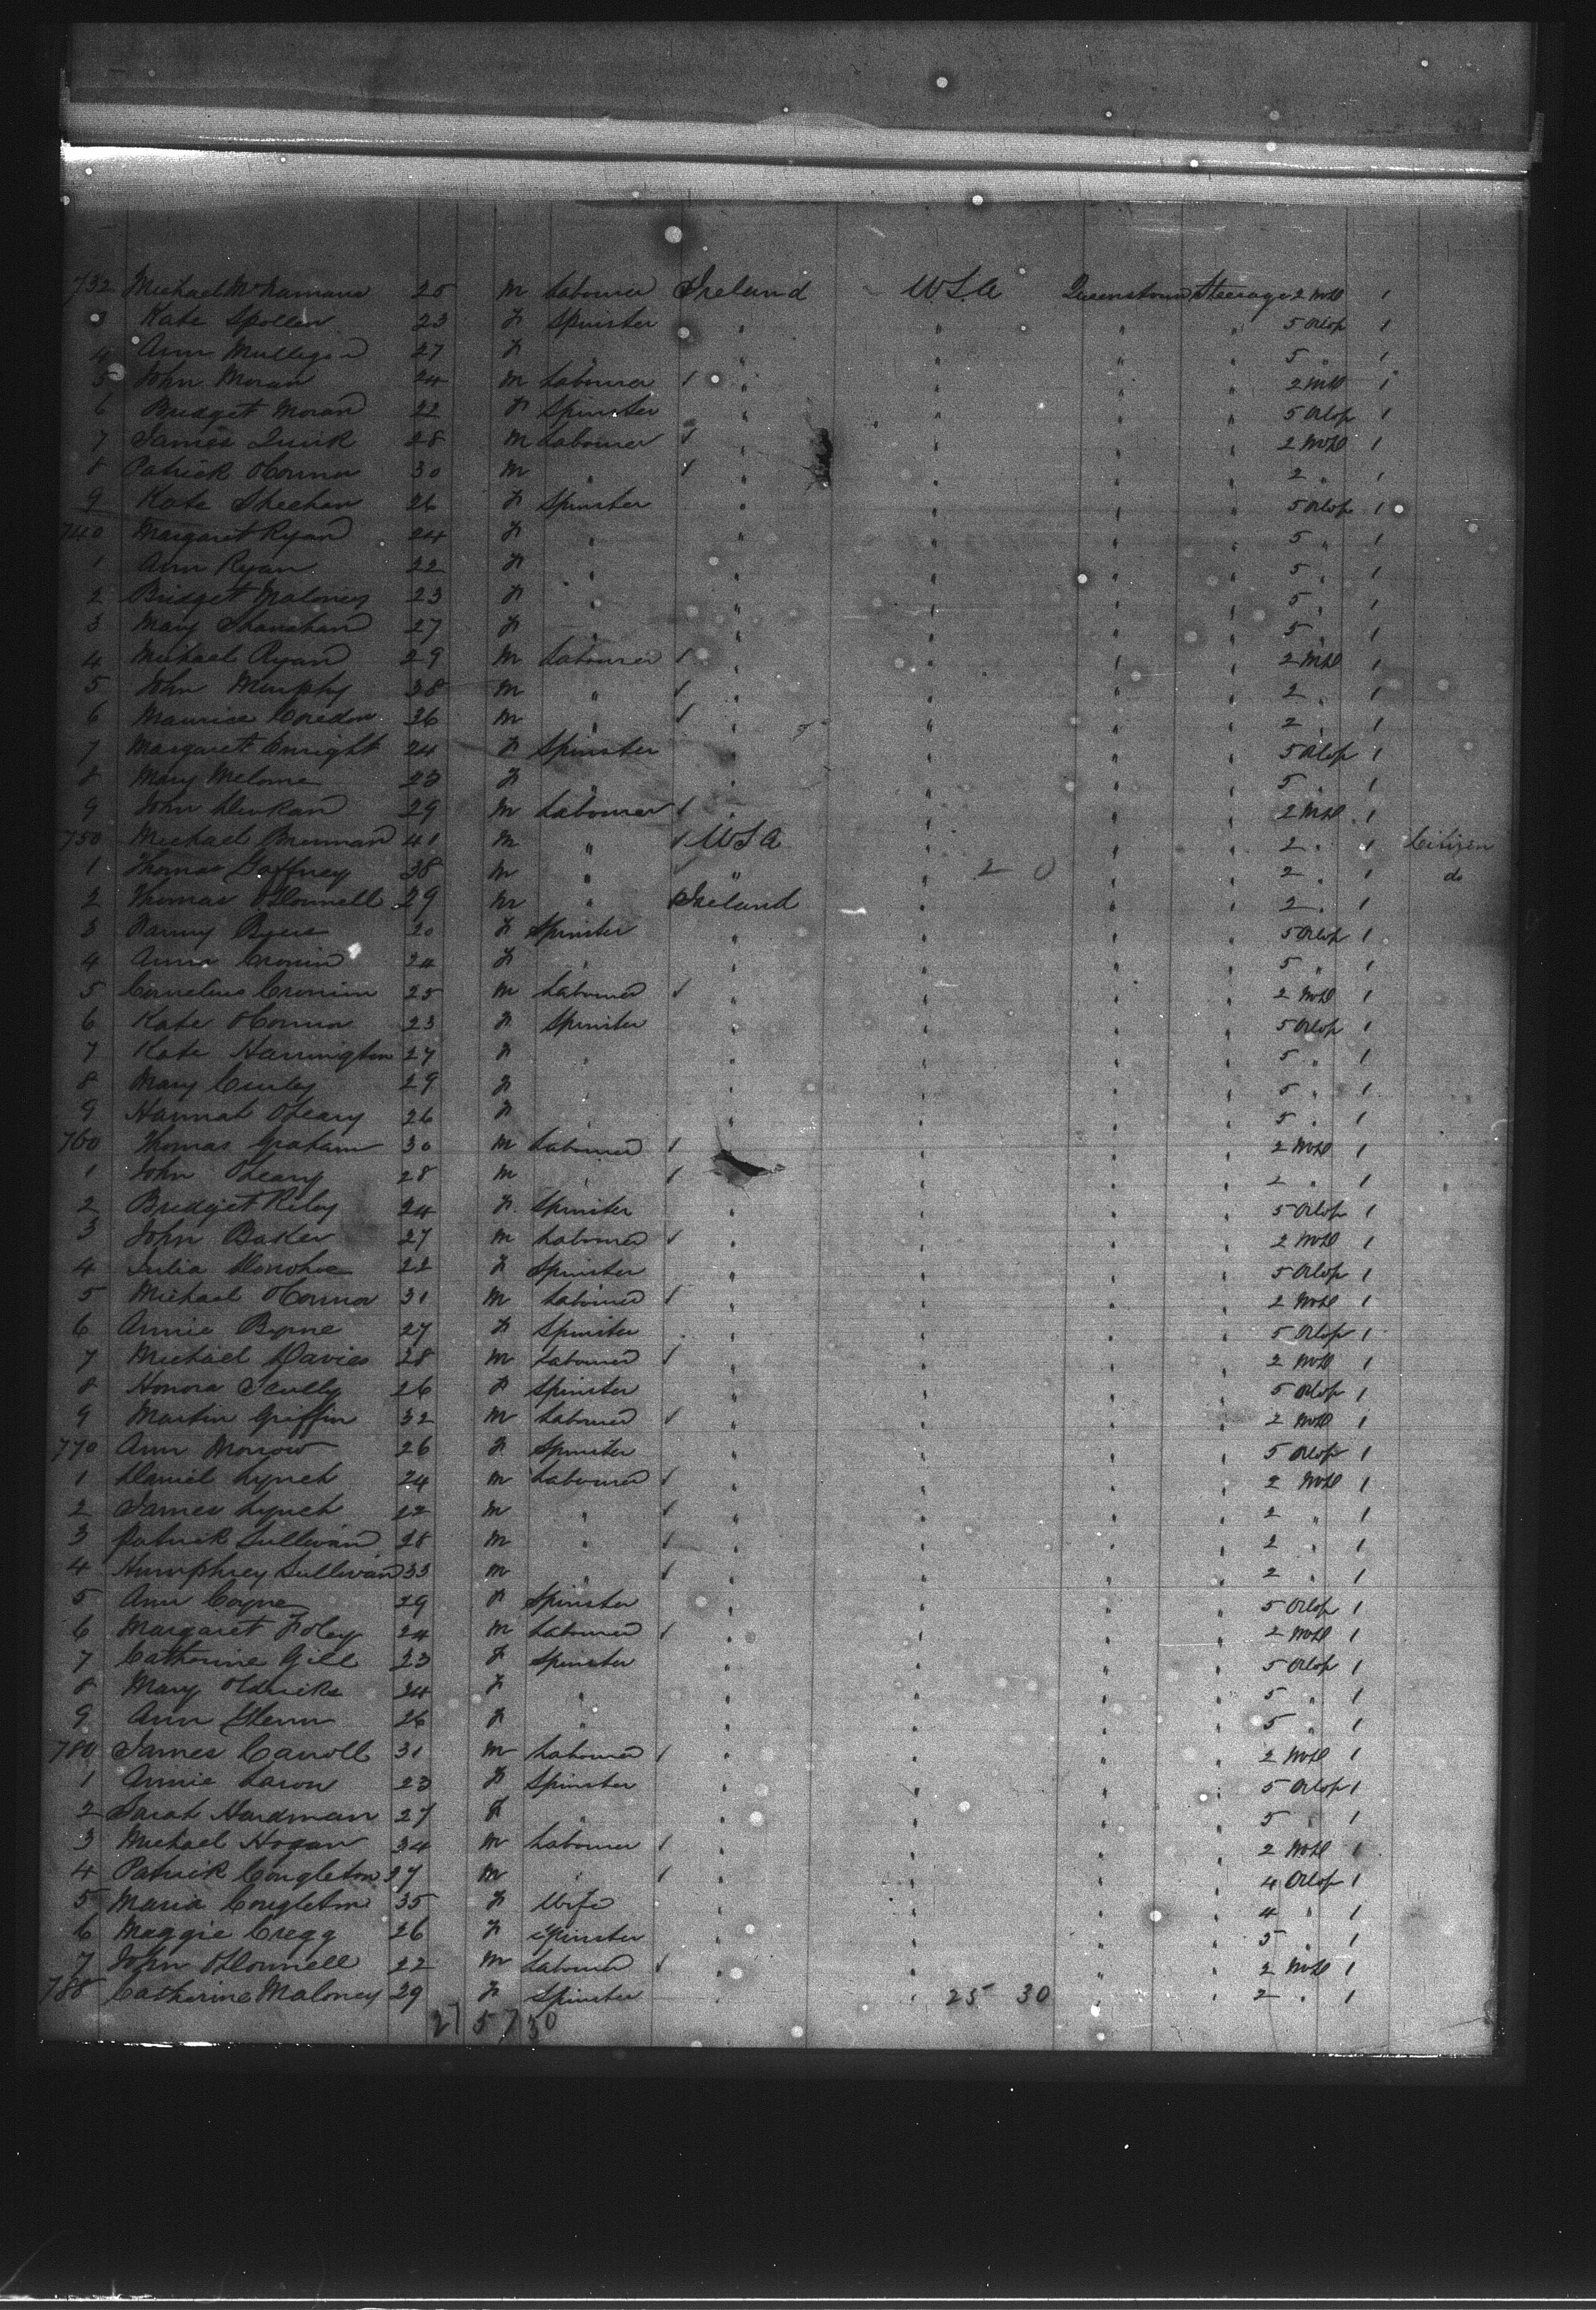 732 Michael McNamara 25 M Labourer Ireland USA Queenstown Steerage 2 Mdl 1
3 Kate Spollen 23 F Spinster " " " " 5 Orlop 1
4 Ann Mulligan 27 F " " " " " 5 " 1
5 John Moran 24 M Labourer 1 " " " " 2 Mdl 1
6 Bridget Moran 22 F Spinster " " " " 5 Orlop 1
7 James Quirk 28 M Labourer 1 " " " " 2 Mdl 1
8 Patrick OConnor 30 M " 1 " " " " 2 " 1
9 Kate Sheehan 26 F Spinster " " " " 5 Orlop 1
740 Margaret Ryan 24 F " " " " " 5 " 1
1 Ann Ryan 22 F " " " " " 5 " 1
2 Bridget Maloney 23 F " " " " " 5 " 1
3 Mary Shanahan 27 F " " " " " 5 " 1
4 Michael Ryan 29 M Labourer 1 " " " " 2 Mdl 1
5 John Murphy 38 M " 1 " " " " 2 " 1
6 Maurice 26 M " 1 " " " " 2 " 1
7 Margaret Enright 24 F Spinster " " " " 5 Orlop 1
8 Mary 23 F " " " " " 5 " 1
9 John 29 M Labourer 1 " " " " 2 Mdl 1
750 Michael Brennan 41 M " 1 USA " " " 2 " 1 Citizen
1 Thomas Gaffney 38 M " " " 2 0 " " 2 " 1 do
2 Thomas ODonnell 29 M " Ireland " " " 2 " 1
3 Fanny Byers 20 F Spinster " " " " 5 Orlop 1
4 Anna Cronin 24 F " " " " " 5 " 1
5 Cornelius Cronin 25 M Labourer 1 " " " " 2 Mdl 1
6 Kate OConnor 23 F Spinster " " " " 5 Orlop 1
7 Kate Harrington 27 F " " " " " 5 " 1
8 Mary Curley 29 F " " " " " 5 " 1
9 Hannah OLeary 26 F " " " " " 5 " 1
760 Thomas Graham 30 M Labourer 1 " " " 2 Mdl 1
1 John OLeary 28 M " 1 " " " 2 " 1
2 Bridget Riley 24 F Spinster " " " " 5 Orlop 1
3 John Baker 27 M Labourer 1 " " " " 2 Mdl 1
4 Julia Donohoe 22 F Spinster " " " " 5 Orlop 1
5 Michael OConnor 31 M Labourer 1 " " " " 2 Mdl 1
6 Annie Byrne 27 F Spinster " " " " 5 Orlop 1
7 Michael Davies 28 M Labourer 1 " " " " 2 Mdl 1
8 Honora Scully 26 F Spinster " " " " 5 Orlop 1
9 Martin Griffin 32 M Labourer 1 " " " " 2 Mdl 1
770 Ann Morrow 26 F Spinster " " " " 5 Orlop 1
1 Daniel Lynch 24 M Labourer 1 " " " " 2 Mdl 1
2 James Lynch 22 M " 1 " " " " 2 " 1
3 Patrick Sullivan 28 M " 1 " " " " 2 " 1
4 Humphrey Sullivan 33 M " 1 " " " " 2 " 1
5 Ann Coyne 29 F Spinster " " " " 5 Orlop 1
6 Margaret Foley 24 M Labourer 1 " " " " 2 Mdl 1
7 Catherine Gill 23 F Spinster " " " " 5 Orlop 1
8 Mary 24 F " " " " " 5 " 1
9 Ann Glenn 26 F " " " " " 5 " 1
780 James Carroll 31 M Labourer 1 " " " " 2 Mdl 1
1 Annie 23 F Spinster " " " " 5 Orlop 1
2 Sarah Hardman 27 F " " " " " 5 " 1
3 Michael Hogan 34 M Labourer 1 " " " " 2 Mdl 1
4 Patrick Congleton 37 M " 1 " " " " 4 Orlop 1
5 Maria Congleton 35 F Wife " " " " 4 " 1
6 Maggie Cregg 26 F Spinster " " " " 5 " 1
7 John ODonnell 22 M Labourer 1 " " " " 2 Mdl 1
788 Catherine Maloney 29 F Spinster " " 25 30 " " 2 " 1
27 57 30